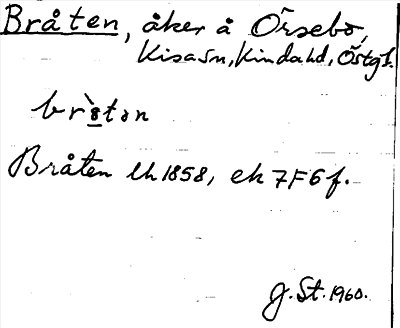 Bråten, åker å Örsebo,
Kisa sn, Kinda hd, Östgl.
brò̱tən
Bråten lh 1858, ek 7F6f.
G. St. 1960.